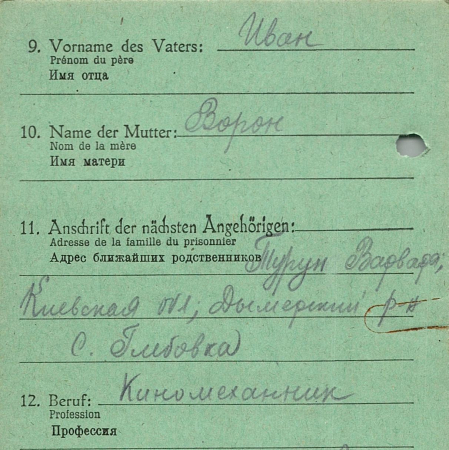 9. Vorname des Vaters: Иван
Prénom du père
Имя отца
10. Name der Mutter: Ворон
Nom de la mère
Имя матери
11. Anschrift der nächsten Angehörigen:
Adresse de la famille du prisonnier
Адрес ближайших родственников Турун
Киевская обл; Дымерский р-н
С. Глебовка
12. Beruf: Киномеханник
Profession
Профессия